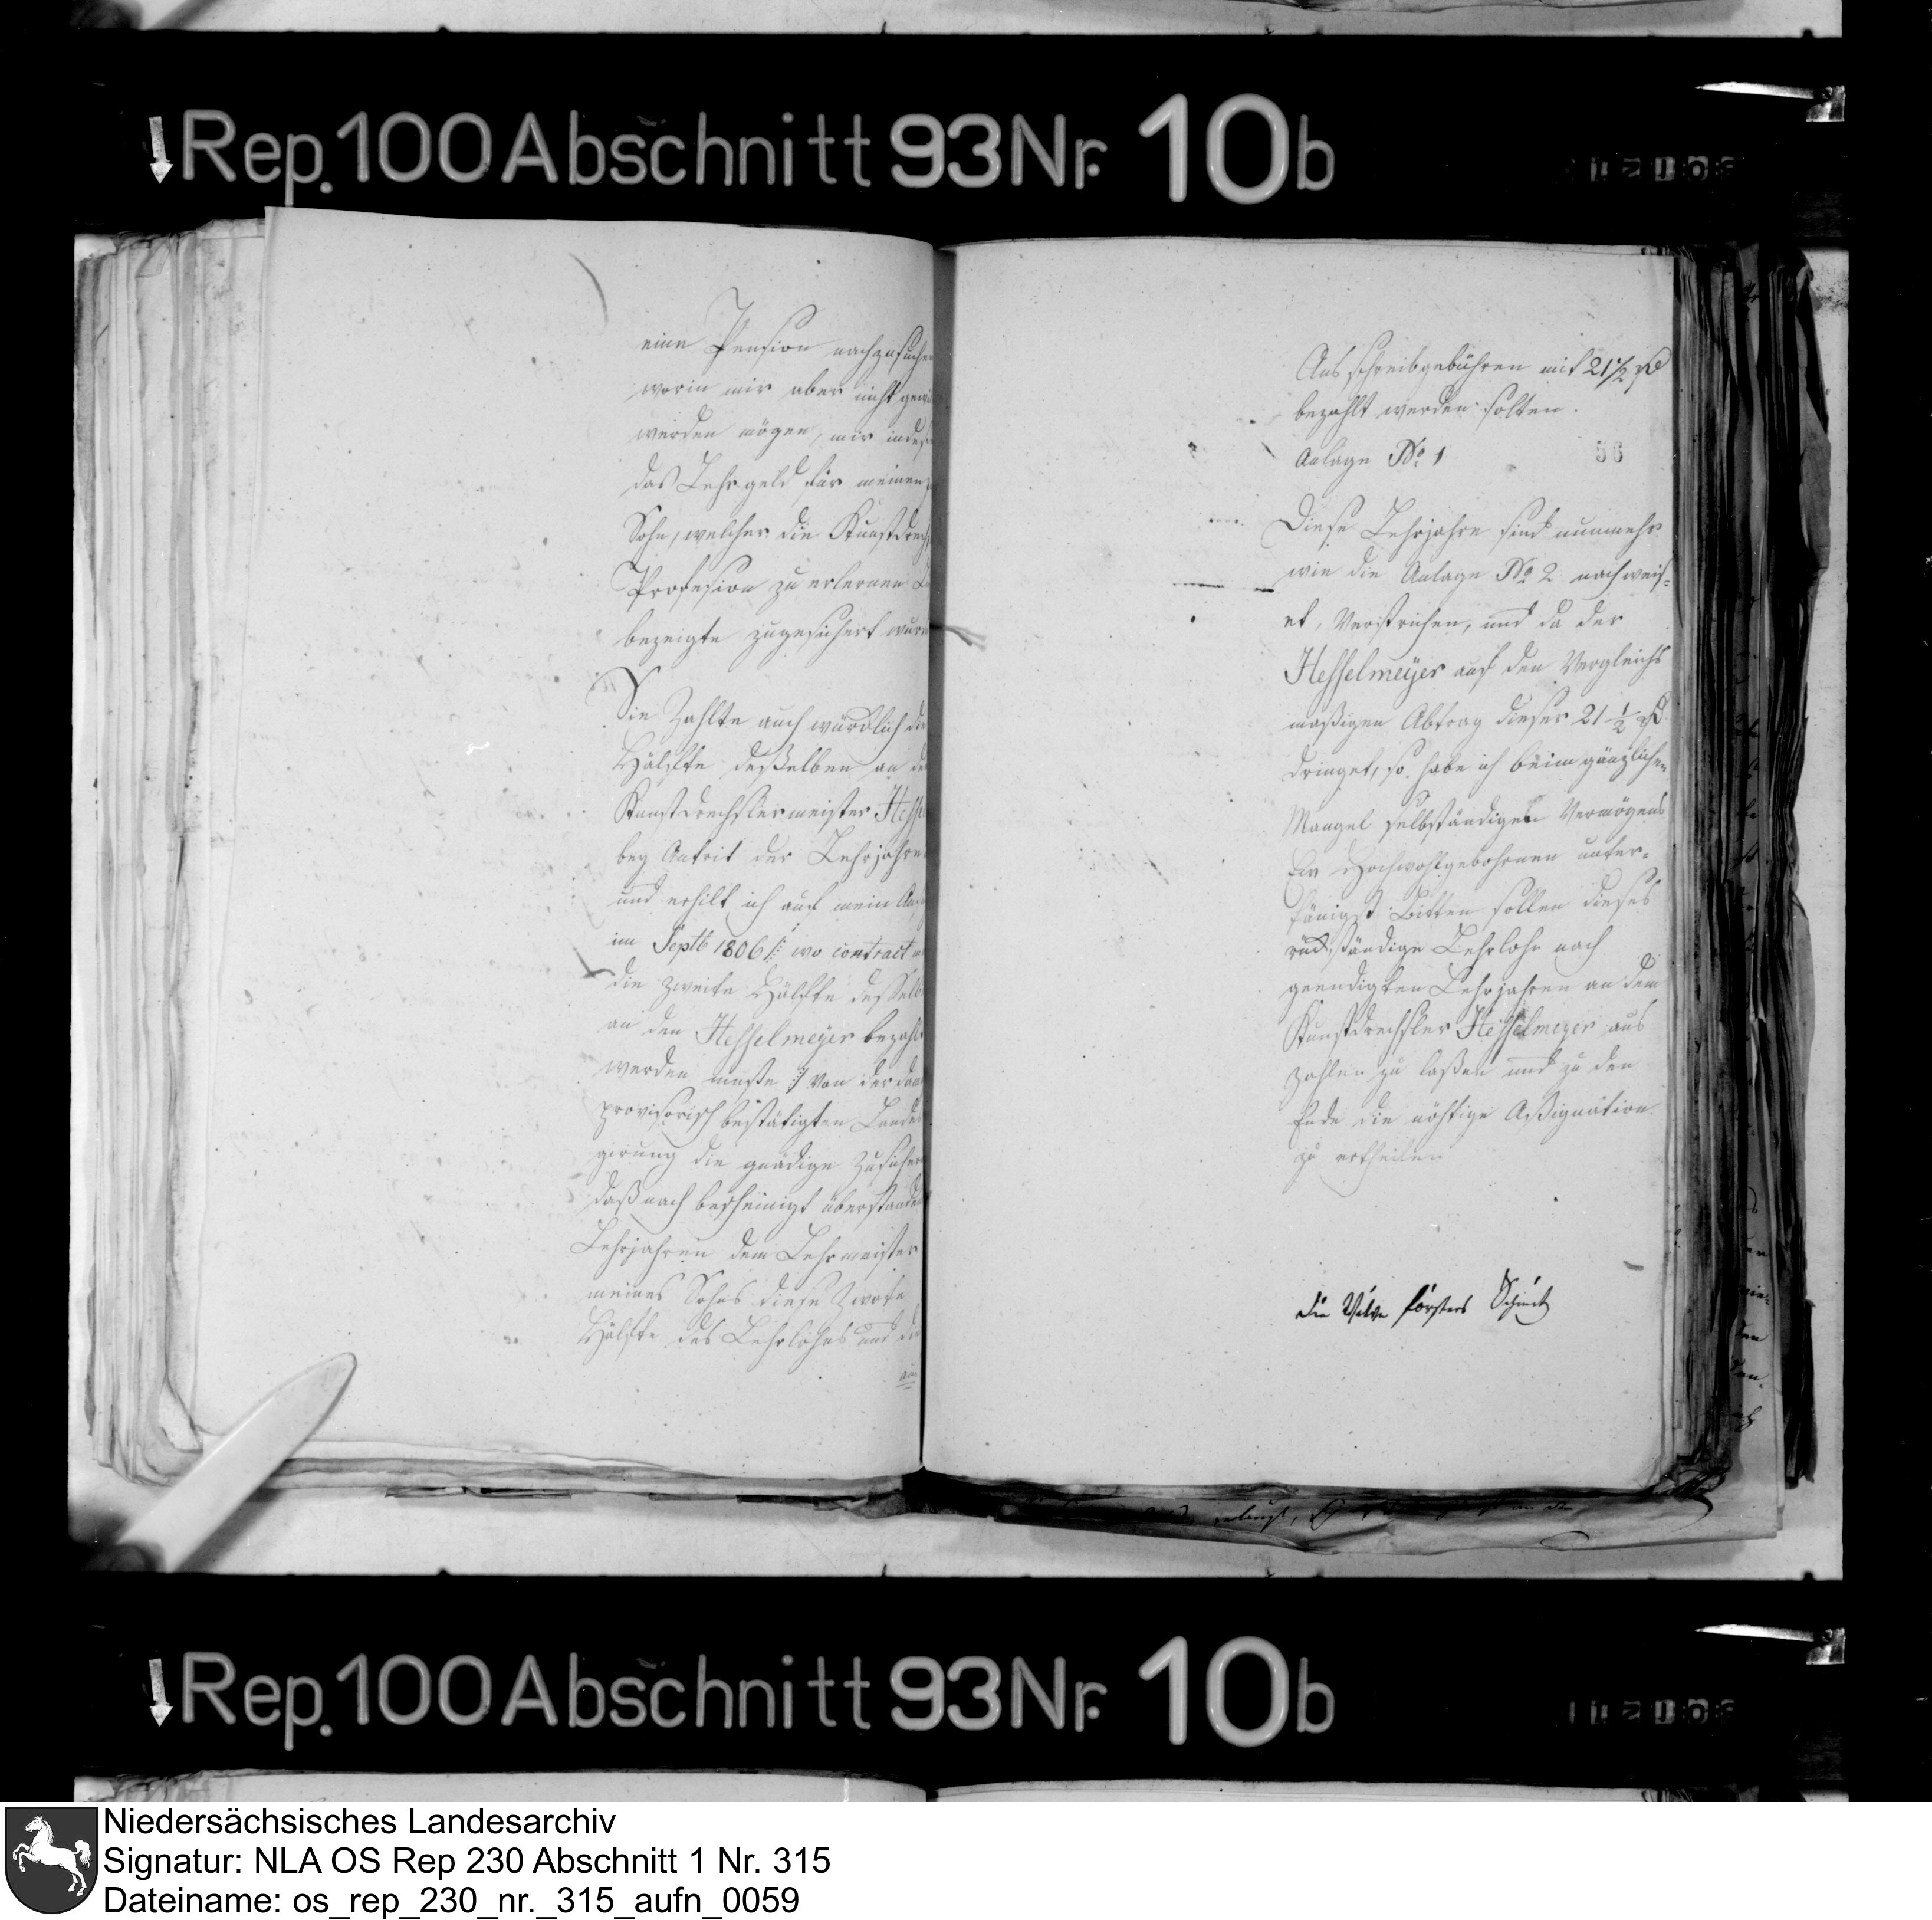 Rep. 100 Abschnitt 93 Nr. 10b
eine Pension nachzusuchen
worin mir aber nicht
werden mögen, mir indeß
das Lehrgeld für meinen
Sohn, welcher die Kunstdrechs
Profession zu erlernen
bezeigte zugesichert wur
Sie Zahlte auch würcklich
Hälffte desselben an
Kunstdrechslermeister Hess
bey Antrit der Lehrjahre
und erhilt ich auf mein
im Septb 1806 /: wo contract
die zweite Hälffte dessel
an den Hesselmeyer bezahlt
werden muste :/ von der
provisorisch bestätigten Landes
gierung die gnädige Zusicher
daß nach bescheinigt überstanden
Lehrjahren dem Lehrmeister
meines Sohns diese Zwote
Hälfte des Lehrlohns und
Ausschreibgebühren mit 21 1/2 rth
bezahlt werden solten.
Anlage No. 1
56
Diese Lehrjahre sind nunmehr
wie die Anlage No. 2 nachweis=
et, Verstrichen, und da der
Hesselmeyer auf den Vergleichs
mäßigen Abtrag dieser 21 1/2 rth
dringet, so habe ich beim gänzlichen
Mangel selbständigen Vermögens
Ew Hochwohlgebohrnen unter=
thänigst Bitten sollen dieses
rückständige Lehrlohn nach
geendigten Lehrjahren an dem
Kunstdrechsler Hesselmeyer aus
zahlen zu laßen und zu den
Ende die nöthige Aßignation
zu ertheilen
die Witwe Försters Schmit
Rep. 100 Abschnitt 93 Nr. 10b
Niedersächsisches Landesarchiv
Signatur: NLA OS Rep 230 Abschnitt 1 Nr. 315
Dateiname: os_rep_230_nr._315_aufn_0059